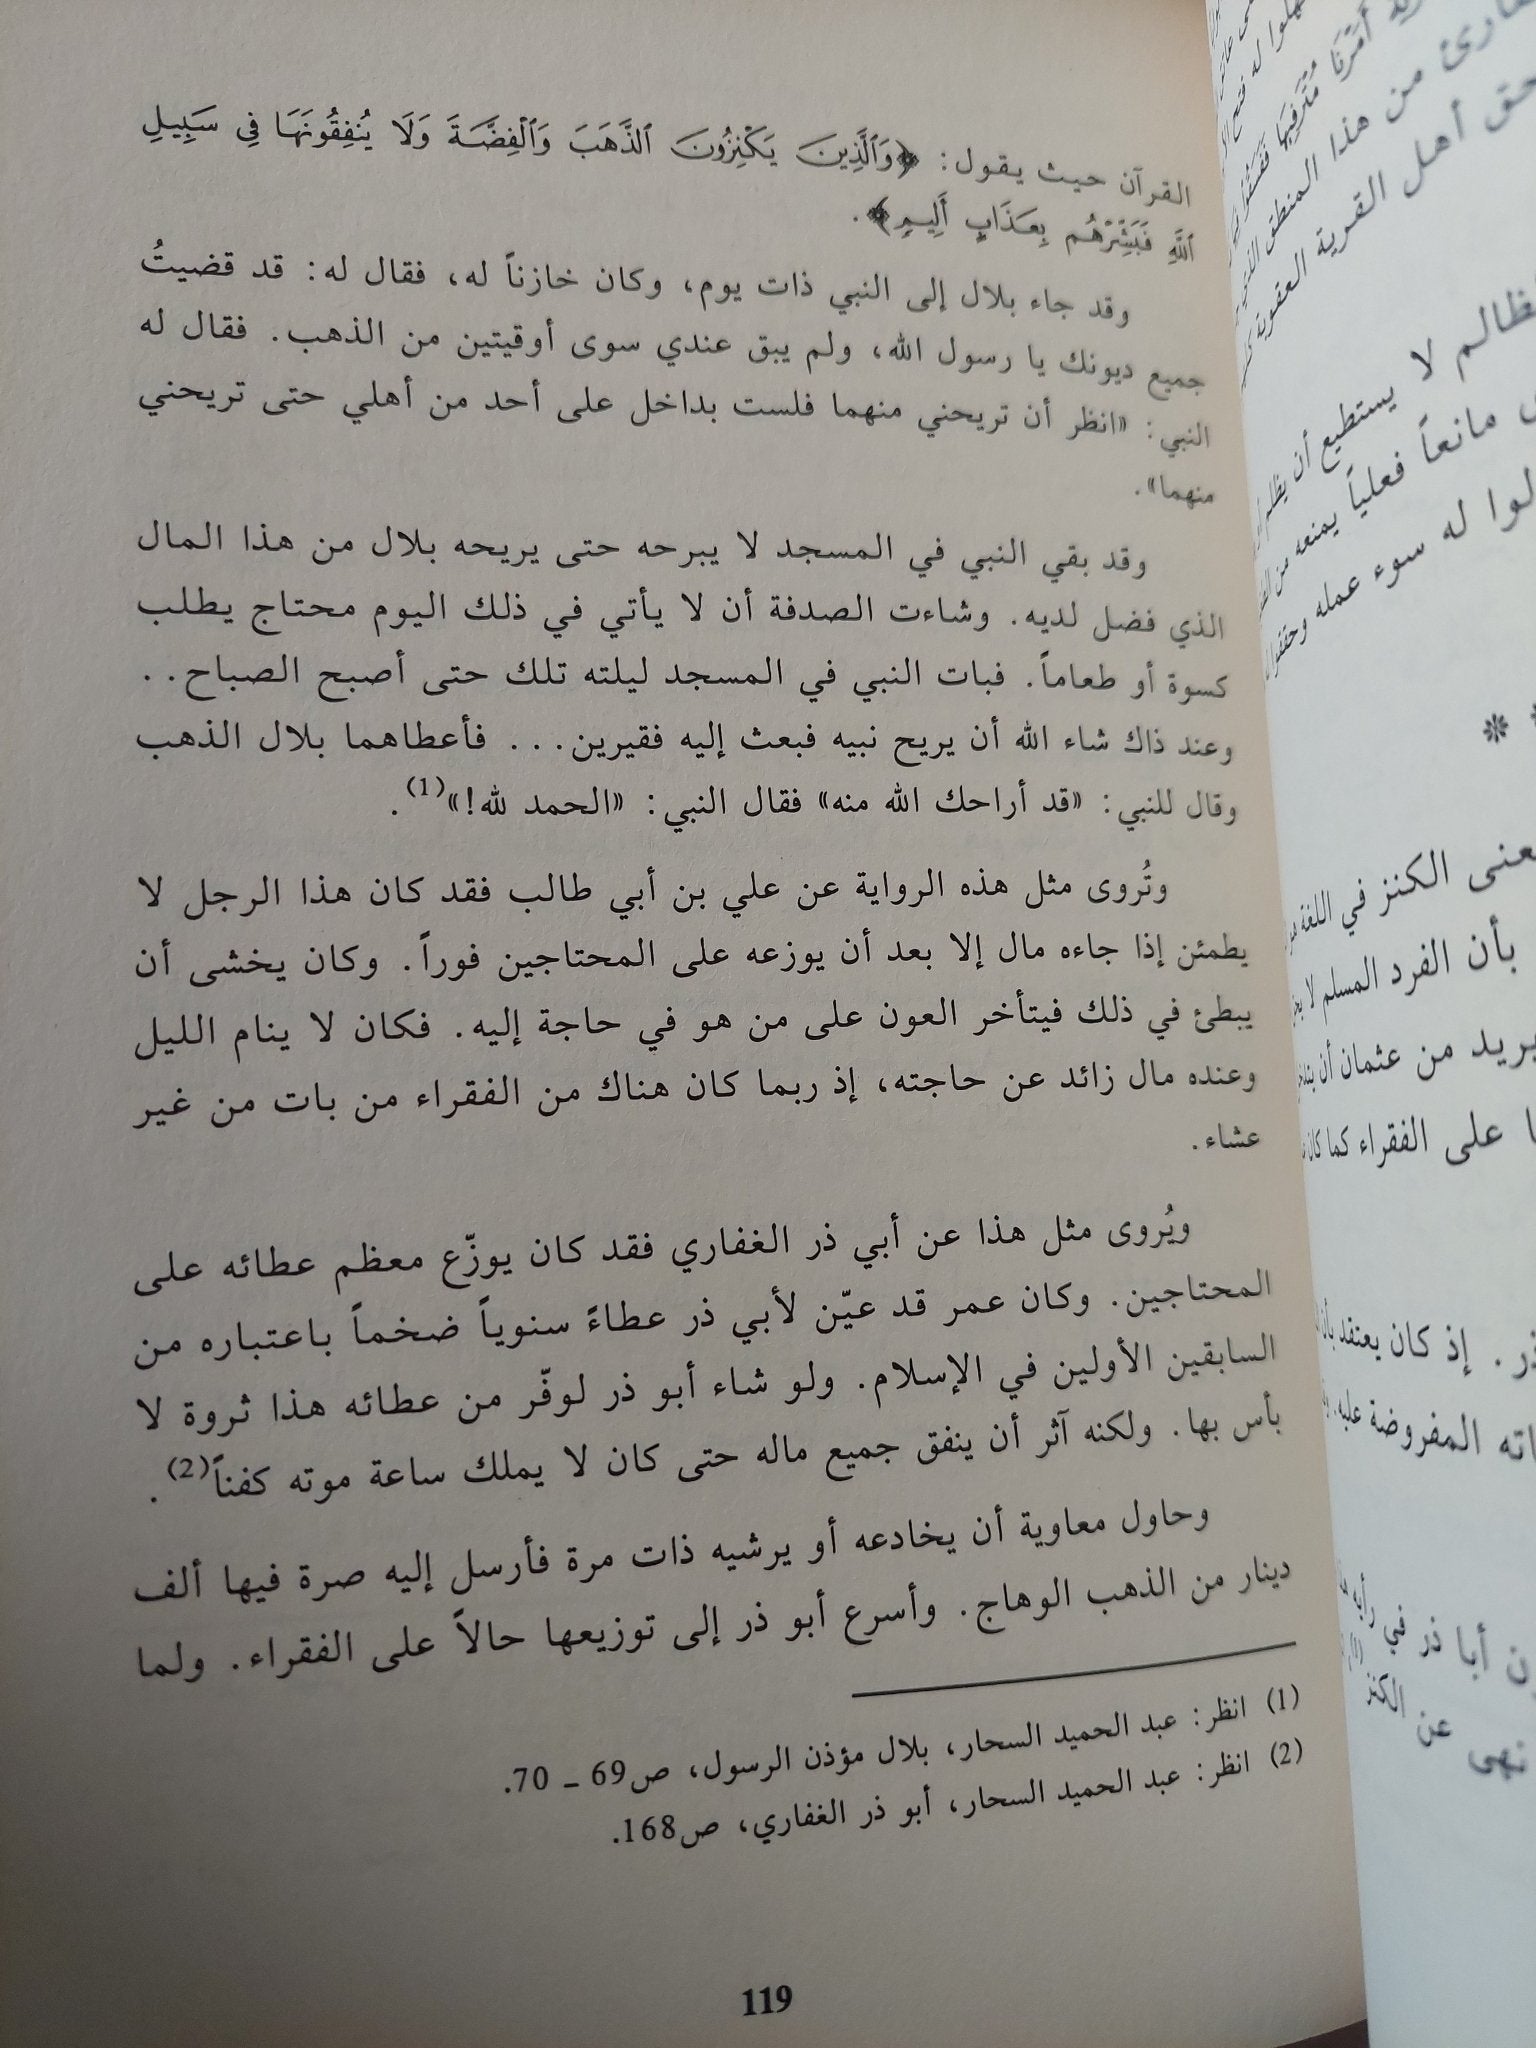 القرآن حيث يقول: ﴿وَٱلَّذِينَ يَكْنِزُونَ ٱلذَّهَبَ وَٱلْفِضَّةَ وَلَا يُنفِقُونَهَا فِى سَبِيلِ
ٱللَّهِ فَبَشِّرْهُم بِعَذَابٍ أَلِيمٍ﴾.
وقد جاء بلال إلى النبي ذات يوم، وكان خازناً له، فقال له: قد قضيتُ
جميع ديونك يا رسول الله، ولم يبق عندي سوى أوقيتين من الذهب. فقال له
النبي: «انظر أن تريحني منهما فلست بداخل على أحد من أهلي حتى تريحني
منهما».
وقد بقي النبي في المسجد لا يبرحه حتى يريحه بلال من هذا المال
الذي فضل لديه. وشاءت الصدفة أن لا يأتي في ذلك اليوم محتاج يطلب
كسوة أو طعاماً. فبات النبي في المسجد ليلته تلك حتى أصبح الصباح..
وعند ذاك شاء الله أن يريح نبيه فبعث إليه فقيرين... فأعطاهما بلال الذهب
وقال للنبي: «قد أراحك الله منه» فقال النبي: «الحمد لله!»(1).
وتُروى مثل هذه الرواية عن علي بن أبي طالب فقد كان هذا الرجل لا
يطمئن إذا جاءه مال إلا بعد أن يوزعه على المحتاجين فوراً. وكان يخشى أن
يبطئ في ذلك فيتأخر العون على من هو في حاجة إليه. فكان لا ينام الليل
وعنده مال زائد عن حاجته، إذ ربما كان هناك من الفقراء من بات من غير
عشاء.
ويُروى مثل هذا عن أبي ذر الغفاري فقد كان يوزّع معظم عطائه على
المحتاجين. وكان عمر قد عيّن لأبي ذر عطاءً سنوياً ضخماً باعتباره من
السابقين الأولين في الإسلام. ولو شاء أبو ذر لوفّر من عطائه هذا ثروة لا
بأس بها. ولكنه آثر أن ينفق جميع ماله حتى كان لا يملك ساعة موته كفناً(2).
وحاول معاوية أن يخادعه أو يرشيه ذات مرة فأرسل إليه صرة فيها ألف
دينار من الذهب الوهاج. وأسرع أبو ذر إلى توزيعها حالاً على الفقراء. ولما
(1) انظر: عبد الحميد السحار، بلال مؤذن الرسول، ص69 ـ 70.
(2) انظر: عبد الحميد السحار، أبو ذر الغفاري، ص168.
119
من هذا المنطق
أهل القرية العقوبة
لا يستطيع أن يظلم
مانعاً فعلياً يمنعه من
له سوء عمله
الكنز في اللغة
بأن الفرد المسلم لا
من عثمان أن
على الفقراء كما كان
إذ كان يعتقد
المفروضة عليه.
أبا ذر في رأيه
نهى عن الكنز